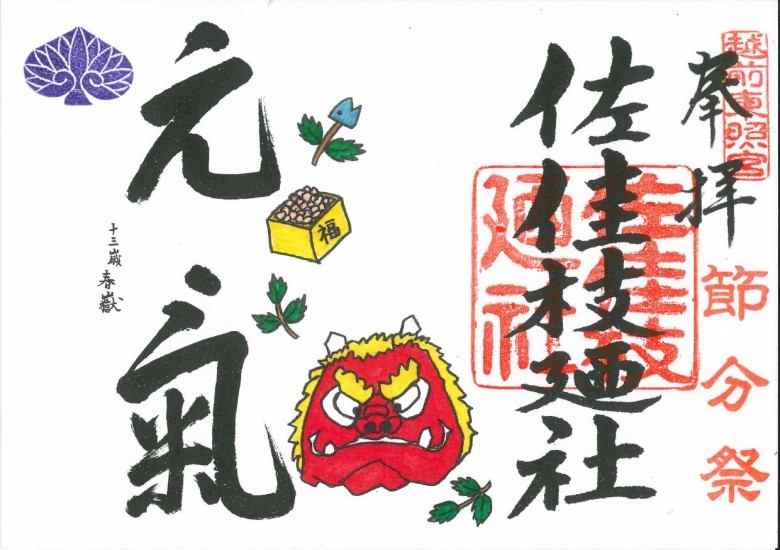 越前東照宮
奉拝
節分祭
佐佳枝廼社
佐佳枝廼社
福
元氣
十三歳 春嶽